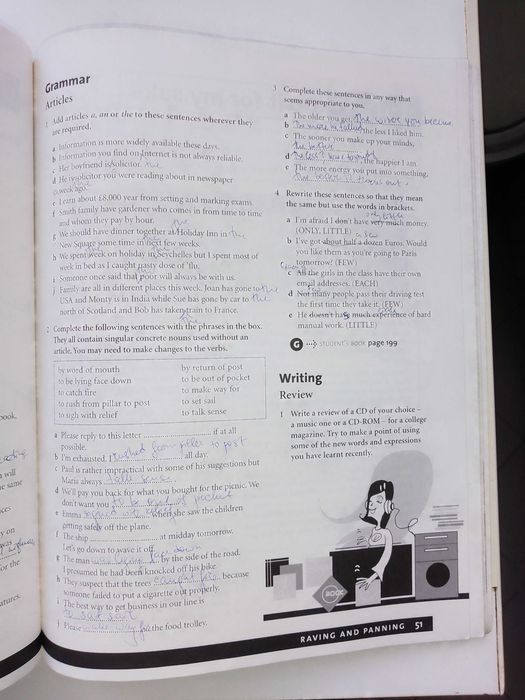 Grammar
Articles
1 Add articles a, an or the to these sentences wherever they
are required.
a Information is more widely available these days.
b Information you find on Internet is not always reliable.
c Her boyfriend is solicitor.
d He is solicitor you were reading about in newspaper
a week ago.
e I earn about £8,000 year from setting and marking exams.
f Smith family have gardener who comes in from time to time
and whom they pay by hour.
g We should have dinner together at Holiday Inn in the
New Square some time in next few weeks.
h We spent week on holiday in Seychelles but I spent most of
week in bed as I caught nasty dose of 'flu.
i Someone once said that poor will always be with us.
j Family are all in different places this week. Joan has gone to the
USA and Monty is in India while Sue has gone by car to the
north of Scotland and Bob has taken train to France.
2 Complete the following sentences with the phrases in the box.
They all contain singular concrete nouns used without an
article. You may need to make changes to the verbs.
by word of mouth by return of post
to be lying face down to be out of pocket
to catch fire to make way for
to rush from pillar to post to set sail
to sigh with relief to talk sense
a Please reply to this letter if at all
possible.
b I'm exhausted. I rushed from pillar to post all day.
c Paul is rather impractical with some of his suggestions but
Maria always talk sense
d We'll pay you back for what you bought for the picnic. We
don't want you to be out of pocket
e Emma when she saw the children
getting safely off the plane.
f The ship at midday tomorrow.
Let's go down to wave it off.
g The man face down by the side of the road.
I presumed he had been knocked off his bike.
h They suspect that the trees because
someone failed to put a cigarette out properly.
i The best way to get business in our line is
j Please make way for the food trolley.
3 Complete these sentences in any way that
seems appropriate to you.
a The older you get, the wiser you become
b The more he talked the less I liked him.
c The sooner you make up your minds,
the better
d the happier I am.
e The more energy you put into something,
4 Rewrite these sentences so that they mean
the same but use the words in brackets.
a I'm afraid I don't have very much money.
(ONLY, LITTLE)
b I've got about half a dozen Euros. Would
you like them as you're going to Paris
tomorrow? (FEW)
c All the girls in the class have their own
email addresses. (EACH)
d Not many people pass their driving test
the first time they take it. (FEW)
e He doesn't have much experience of hard
manual work. (LITTLE)
G STUDENT'S BOOK page 199
Writing
Review
1 Write a review of a CD of your choice –
a music one or a CD-ROM – for a college
magazine. Try to make a point of using
some of the new words and expressions
you have learnt recently.
ROCK
RAVING AND PANNING 51